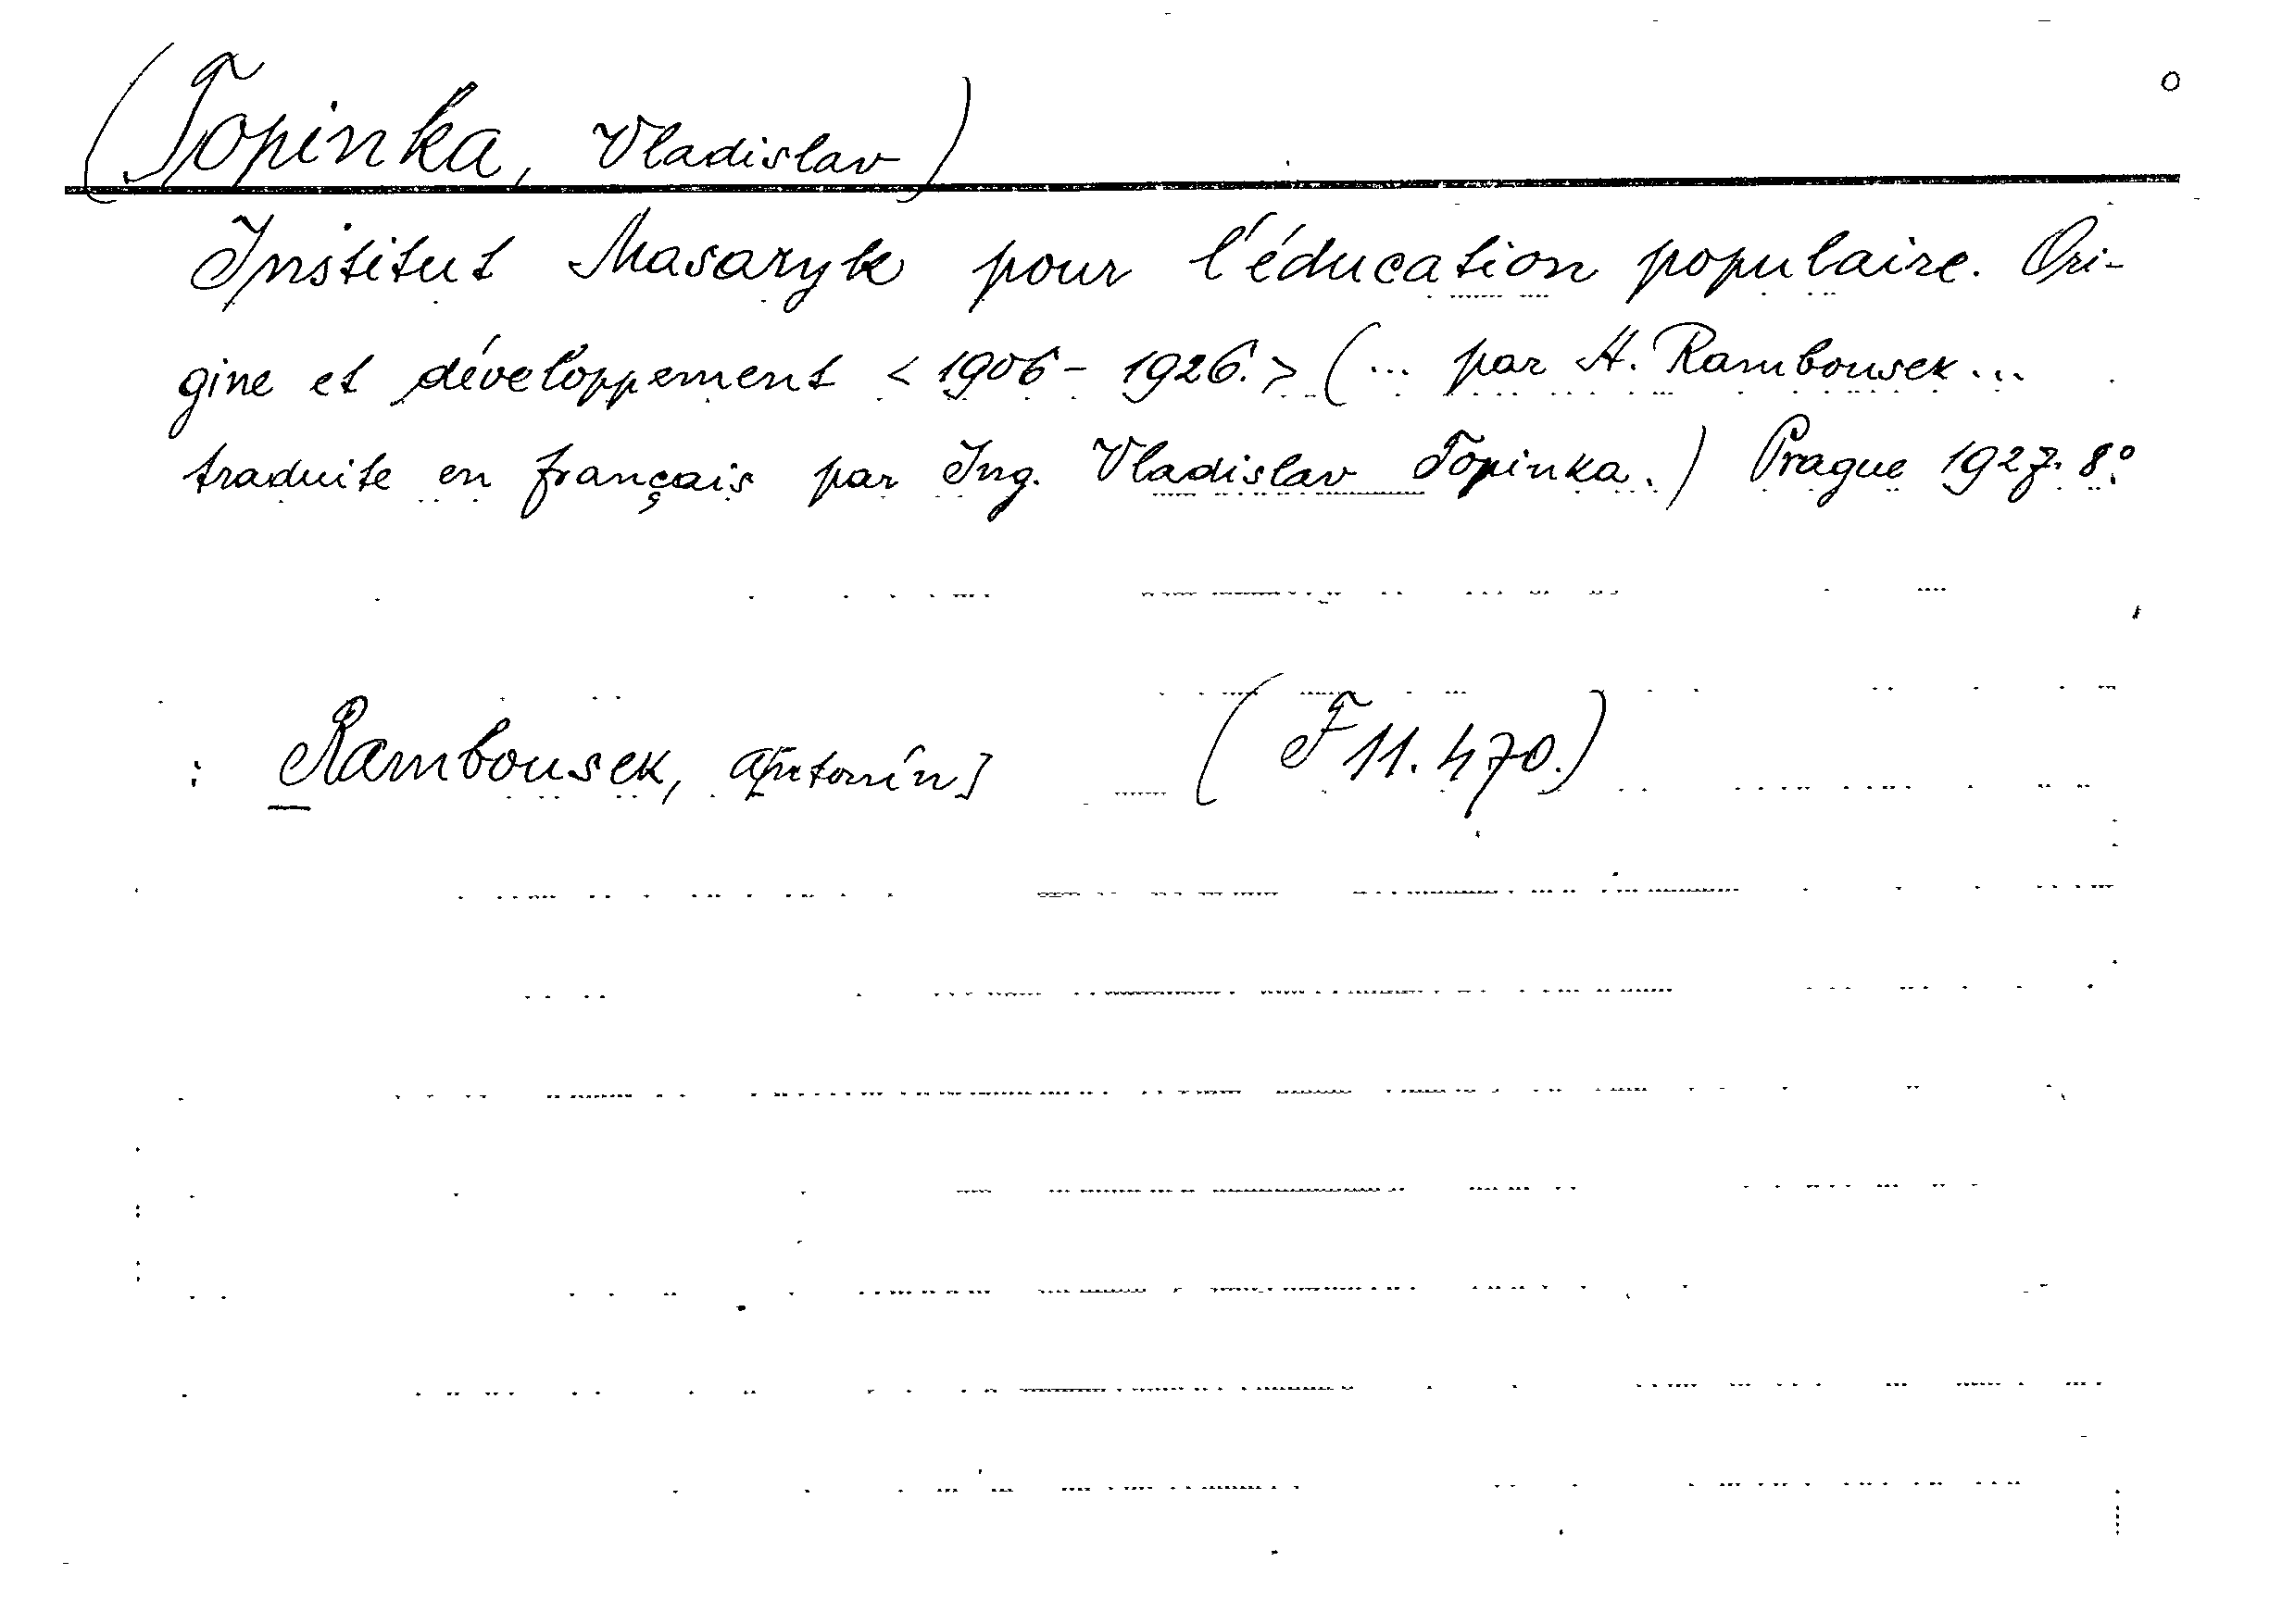 (Topinka, Vladislav)
Institut Masaryk pour l'éducation populaire. Ori-
gine et développement <1906-1926.> (... par A. Rambousek...
traduite en français par Ing. Vladislav Topinka.) Prague 1927. 8°
: Rambousek, A[ntonín] (F 11.470.)